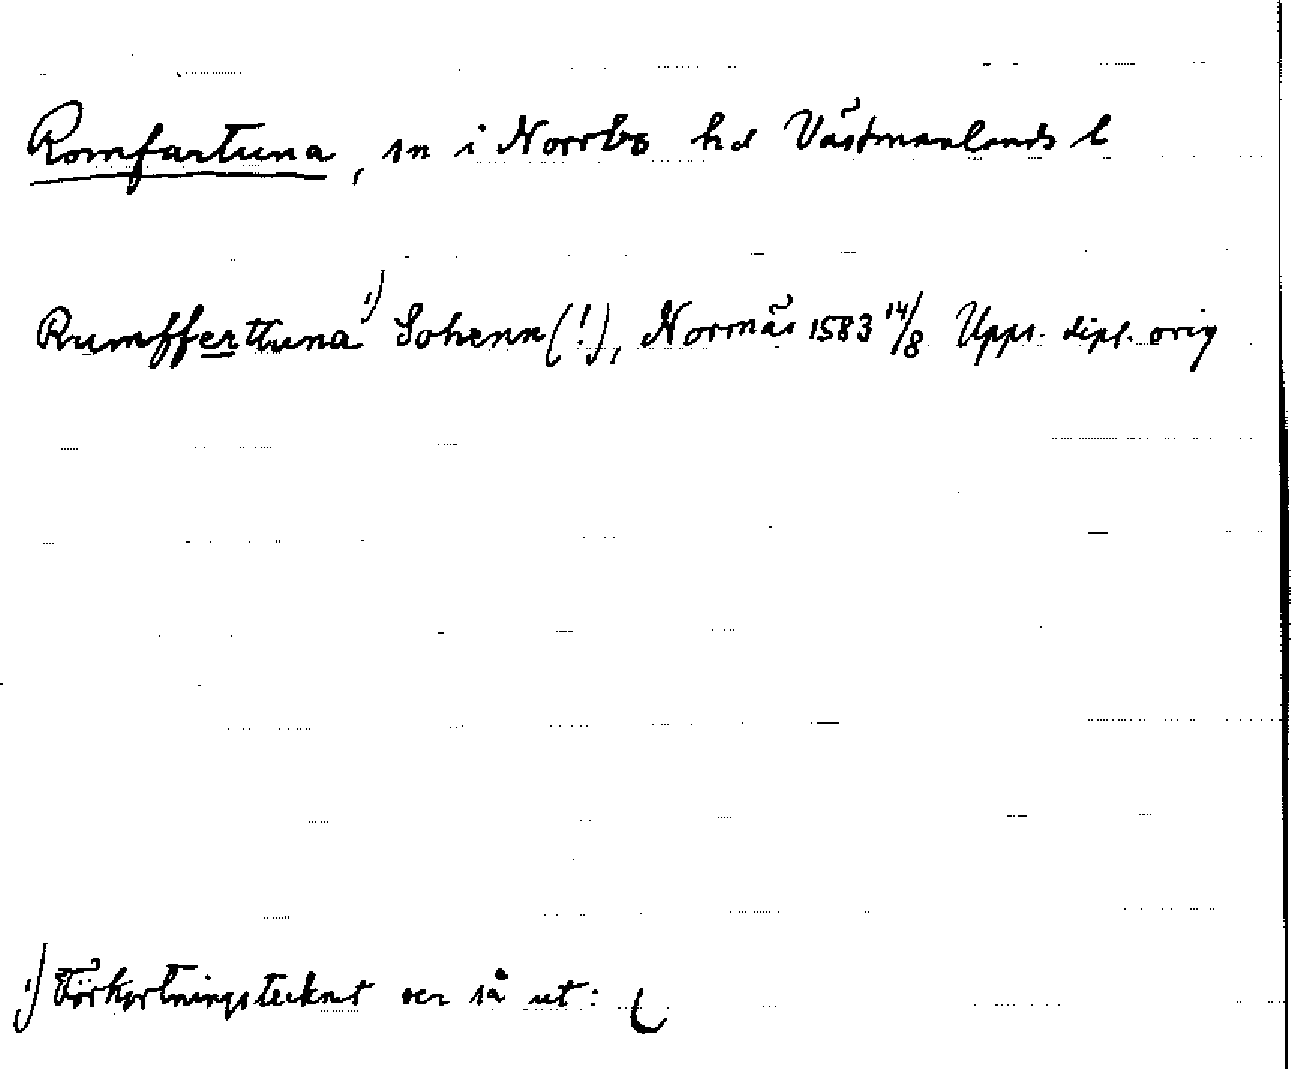 Romfartuna, sn i Norrbo hd Västmanlands l
Rumffertuna ¹) Sohenn (!), Norrnäs 1583 14/8 Upps. dipl. orig
¹) Förkortningstecknet ser så ut: